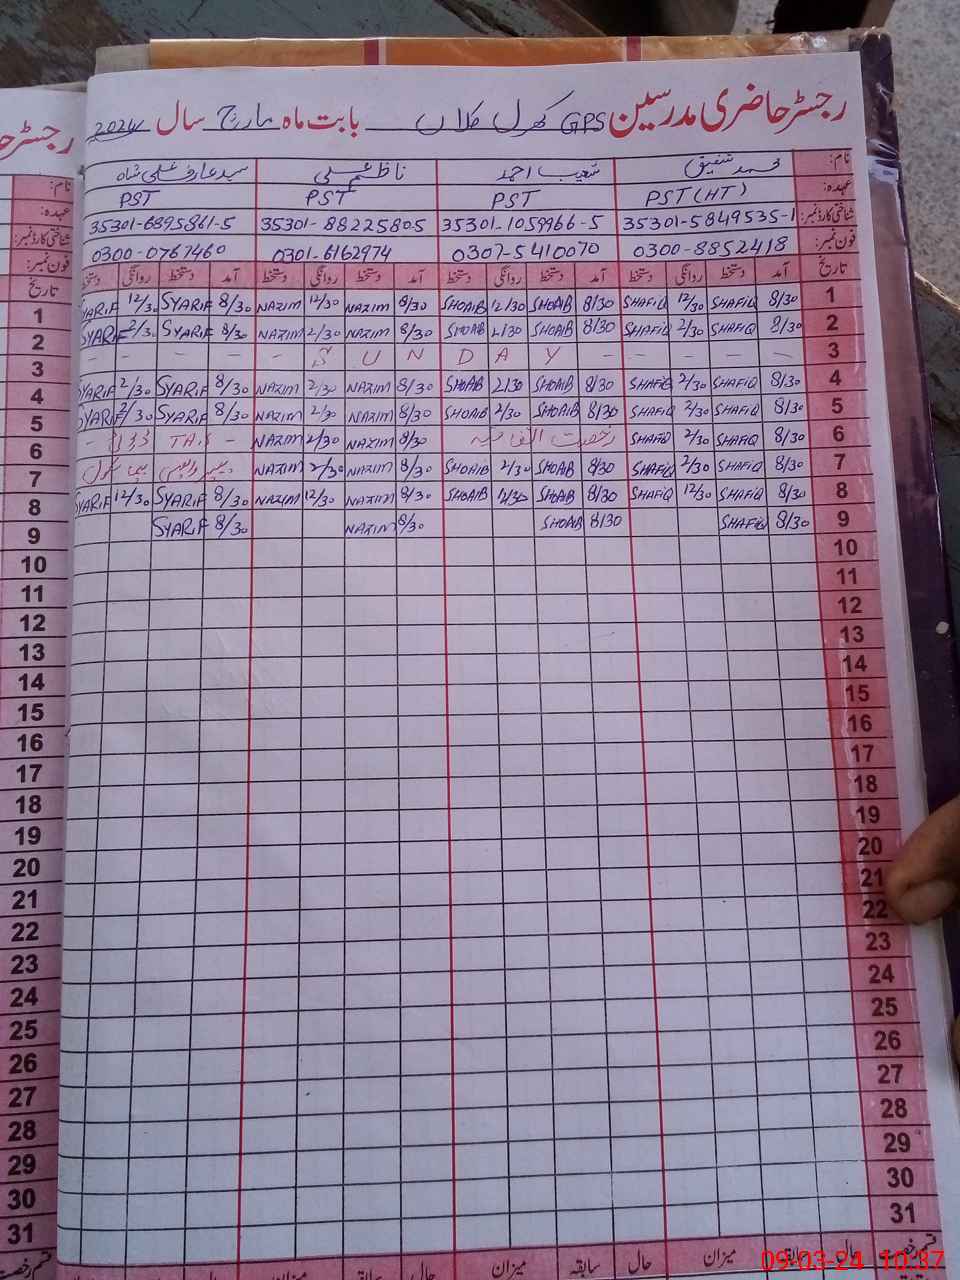 رجسٹر حاضری مدرسین GPS کھرل کلاں بابت ماہ مارچ سال 2024
نام: محمد شفیق شعیب احمد ناظم علی سید عارف علی شاہ
عہدہ: PST (HT) PST PST PST
شناختی کارڈ نمبر: 35301-5849535-1 35301-1059966-5 35301-88225805 35301-6895861-5
فون نمبر: 0300-8852418 0307-5410070 0301-6162974 0300-0767460
تاریخ آمد دستخط روانگی دستخط آمد دستخط روانگی دستخط آمد دستخط روانگی دستخط آمد دستخط روانگی دستخط
1 8/30 SHAFIQ 12/30 SHAFIQ 8/30 SHOAIB 12/30 SHOAIB 8/30 NAZIM 12/30 NAZIM 8/30 SYARIF 12/30 SYARIF
2 8/30 SHAFIQ 2/30 SHAFIQ 8/30 SHOAIB 2/30 SHOAIB 8/30 NAZIM 2/30 NAZIM 8/30 SYARIF 2/30 SYARIF
3 - - - - S U N D A Y - - - -
4 8/30 SHAFIQ 2/30 SHAFIQ 8/30 SHOAIB 2/30 SHOAIB 8/30 NAZIM 2/30 NAZIM 8/30 SYARIF 2/30 SYARIF
5 8/30 SHAFIQ 2/30 SHAFIQ 8/30 SHOAIB 2/30 SHOAIB 8/30 NAZIM 2/30 NAZIM 8/30 SYARIF 2/30 SYARIF
6 8/30 SHAFIQ 2/30 SHAFIQ رخصت اتفاقیہ 8/30 NAZIM 2/30 NAZIM - TAS -
7 8/30 SHAFIQ 2/30 SHAFIQ 8/30 SHOAIB 2/30 SHOAIB 8/30 NAZIM 2/30 NAZIM
8 8/30 SHAFIQ 12/30 SHAFIQ 8/30 SHOAIB 12/30 SHOAIB 8/30 NAZIM 12/30 NAZIM 8/30 SYARIF 12/30 SYARIF
9 8/30 SHAFIQ 8/30 SHOAIB 8/30 NAZIM 8/30 SYARIF
10
11
12
13
14
15
16
17
18
19
20
21
22
23
24
25
26
27
28
29
30
31
حال سابقہ میزان حال سابقہ میزان حال سابقہ میزان
تاریخ
1
2
3
4
5
6
7
8
9
10
11
12
13
14
15
16
17
18
19
20
21
22
23
24
25
26
27
28
29
30
31
09-03-24 10:37